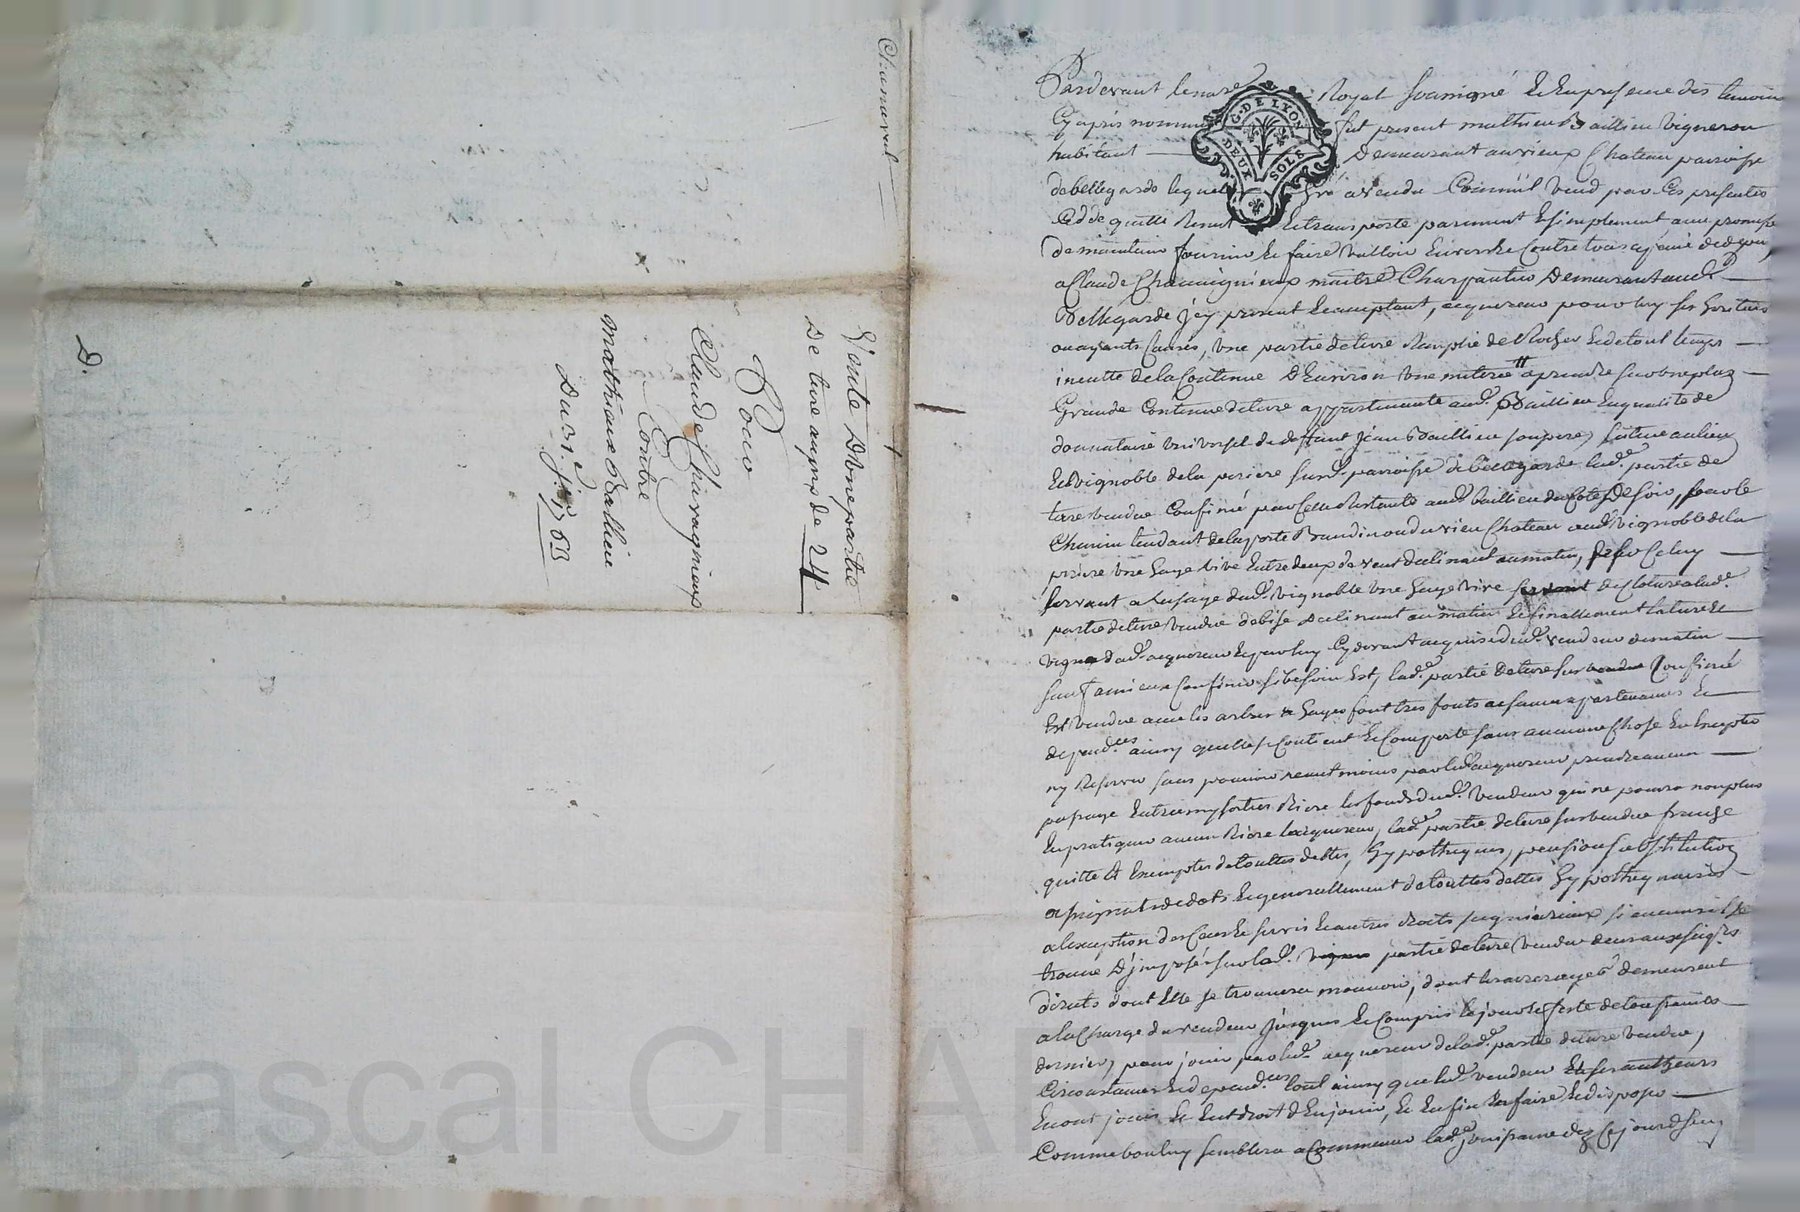 Chameral
Vente D'une partie
De terre au prix de 24
Pour
Claude Charvagnieux
Contre
mathieux Baillieu
Du 1763
D.
G. DE LYON
DEUX SOLS
Pardevant le notaire Royal soussigné Et En presence des temoins
Cy apres nommés fut present mathieu Baillieu vigneron
habitant Demeurant au vieux Chateau paroisse
de bellegarde lequel gré a vendu Comme il vend par Ces presentes
Cede quitte Remet Et transporte purement Et simplement avec promesse
de maintenir fournir Et faire valloir Envers Et Contre tous
a Claude Charvagnieux maître Charpentier Demeurant aud.
Bellegarde jcy present Et acceptant, acquereur pour luy ses hoirs
ou ayants Causes, Une partie de terre Remplie de Rocher Et de tout temps
inculte de la Contenue D'Environ Une miterée a prendre sur Une plus
Grande Contenue de terre appartenante aud. Baillieu En qualité de
donnataire Universel de deffunt jean Baillieu son pere, situee au lieu
Et Vignoble de la periere sur lad. paroisse de bellegarde lad. partie de
terre vendue Confinée par Celle Restante aud. Baillieu du Coté De soir, par le
Chemin tendant de la porte au vieu Chateau aud. Vignoble de la
periere Une haye vive Entre deux de vent declinant au matin, par Celuy
servant a l'usage dud. Vignoble Une haye vive servant de Cloture a lad.
partie de terre vendue de bise declinant au matin Et finallement la terre Et
Vigne dud. acquereur Et par luy Cy devant acquise dud. vendeur de matin
sauf a mieux Confiner si besoin Est, lad. partie de terre sus Confinée
Est vendue avec les arbres Et hayes fonds tres fonds aisances appartenances Et
depend.ces ainsy qu'elle se Contient Et Comporte sans aucune Chose En Excepter
ny Reserver sans pouvoir neantmoins par led. acquereur prendre aucun
passage Entrer ny sortir Riere les fonds dud. Vendeur qui ne pourra non plus
En pratiquer aucun Riere l'acquereur, lad. partie de terre sus vendue franche
quitte Et Exempte de touttes dettes, hypotheques, pension substitution
Et generallement de touttes dettes hypothequaires
a l'exception des Cens Et servis Et autres droits seigneuriaux si aucuns il se
trouve D'imposés sur lad. partie de terre vendue
droits dont Elle se trouvera mouvoir, dont les arrerages demeurent
a la Charge du vendeur jusques Et Compris le jour Et feste de
dernier, pour jouir par led. acquereur de lad. partie de terre vendue,
Circonstances Et depend.ces tout ainsy que led. vendeur Et ses autheurs
En ont jouis Et Eut droit d'En jouir, Et En fin En faire Et disposer
Comme bon luy semblera a Commencer lad. jouissance dez Ce jourd'huy